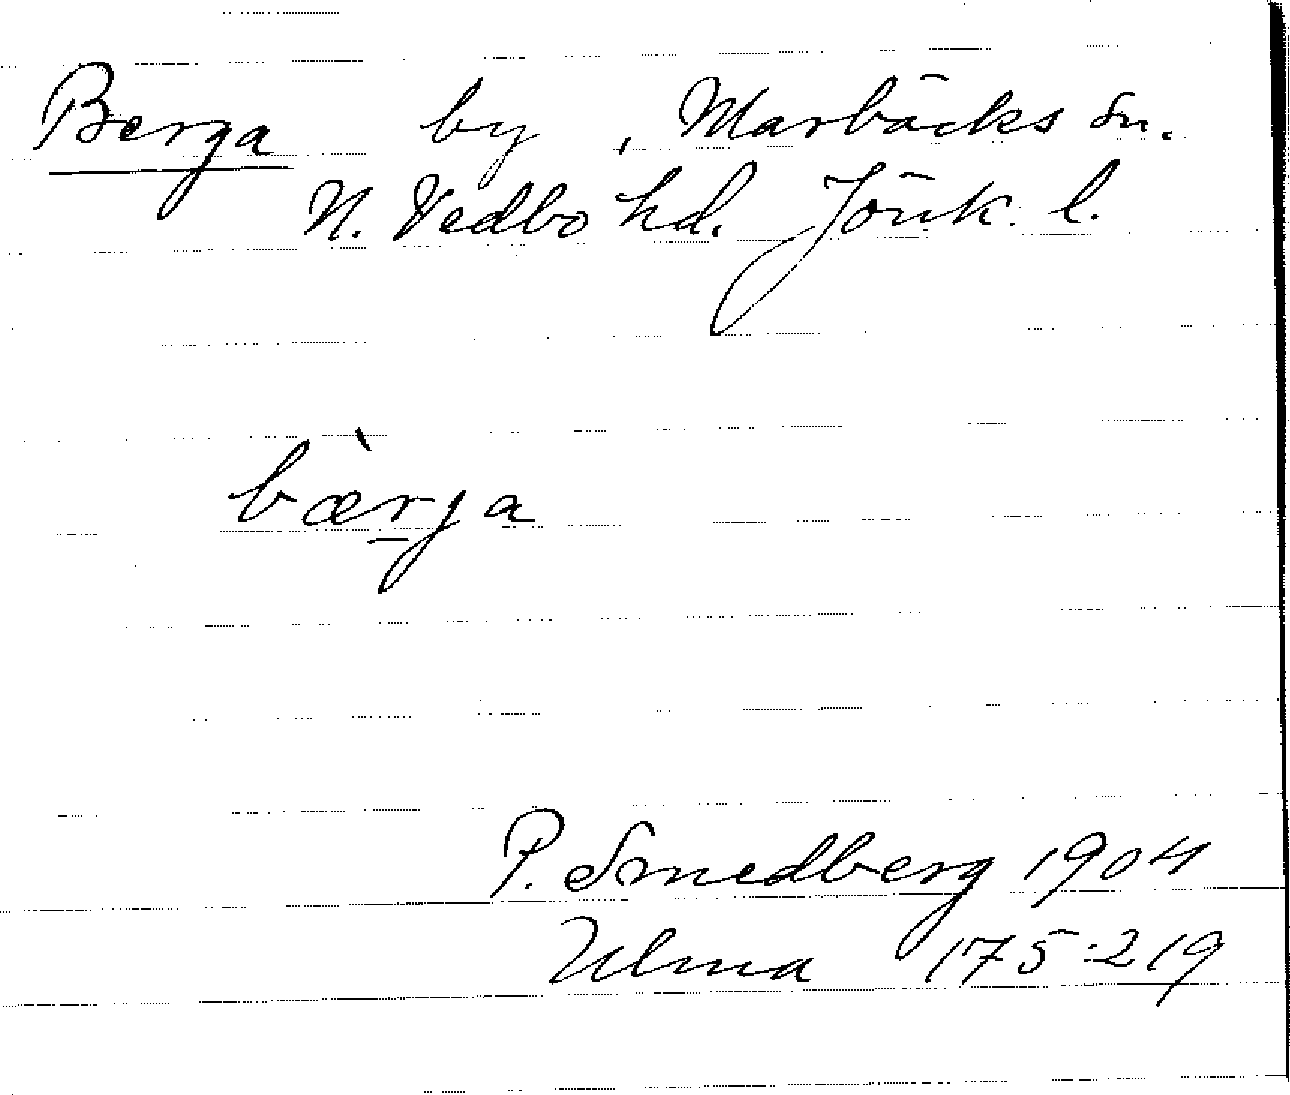 Berga by, Marbäcks sn.
N. Vedbo hd. Jönk. l.
bæ̀rja
P. Smedberg 1904
Ulma 175:219